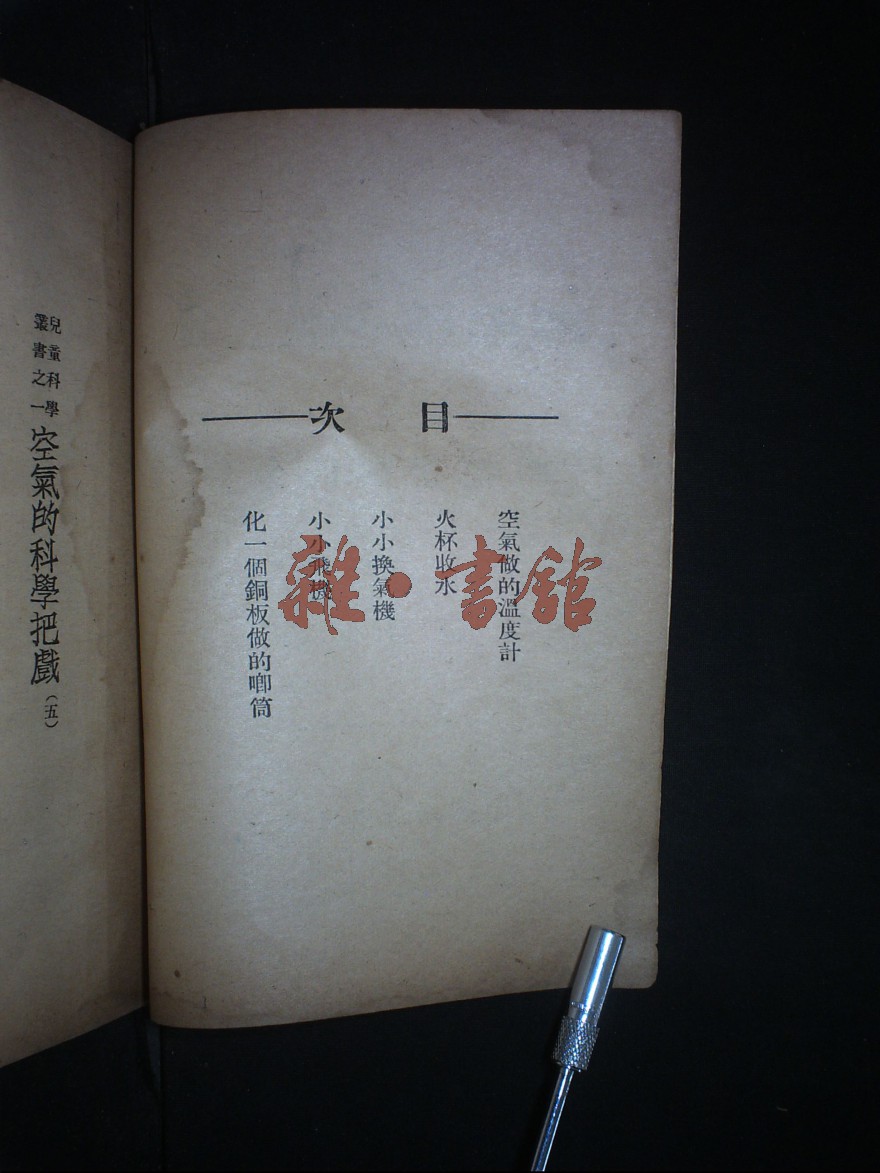 目次
空氣做的溫度計
火杯收水
小小換氣機
小小飛機
化一個銅板做的唧筒
兒童科學
叢書之一
空氣的科學把戲(五)
雜·書館